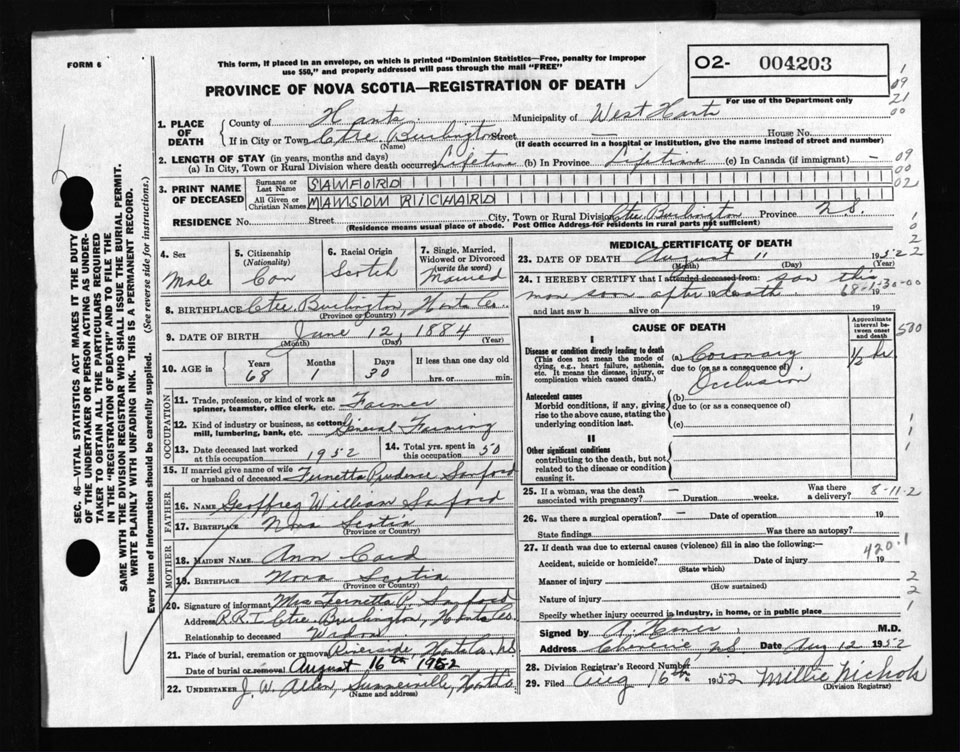 FORM 6
This form, if placed in an envelope, on which is printed "Dominion Statistics—Free, penalty for improper
use $50," and properly addressed will pass through the mail "FREE"
PROVINCE OF NOVA SCOTIA—REGISTRATION OF DEATH
O2- 004203
For use of the Department only
1. PLACE OF DEATH
County of Hants Municipality of West Hants
If in City or Town Ctre. Burlington Street — House No.
(Name) (If death occurred in a hospital or institution, give the name instead of street and number)
2. LENGTH OF STAY (in years, months and days)
(a) In City, Town or Rural Division where death occurred Lifetime (b) In Province Lifetime (c) In Canada (if immigrant) —
3. PRINT NAME OF DECEASED
Surname or Last Name SANFORD
All Given or Christian Names MANSON RICHARD
RESIDENCE No. Street City, Town or Rural Division Ctre. Burlington Province N.S.
(Residence means usual place of abode. Post Office Address for residents in rural parts not sufficient)
4. Sex Male
5. Citizenship (Nationality) Can
6. Racial Origin Scotch
7. Single, Married, Widowed or Divorced (write the word) Married
8. BIRTHPLACE Ctre. Burlington, Hants Co.
(Province or Country)
9. DATE OF BIRTH June 12, 1884
(Month) (Day) (Year)
10. AGE in Years 68 Months 1 Days 30 If less than one day old hrs. or min.
OCCUPATION
11. Trade, profession, or kind of work as spinner, teamster, office clerk, etc. Farmer
12. Kind of industry or business, as cotton mill, lumbering, bank, etc. General Farming
13. Date deceased last worked at this occupation 1952
14. Total yrs. spent in this occupation 50
15. If married give name of wife or husband of deceased Fernetta Prudence Sanford
FATHER
16. NAME Geoffrey William Sanford
17. BIRTHPLACE Nova Scotia
(Province or Country)
MOTHER
18. MAIDEN NAME Ann Card
19. BIRTHPLACE Nova Scotia
(Province or Country)
20. Signature of informant Mrs Fernetta P. Sanford
Address R.R.1. Ctre. Burlington, Hants Co.
Relationship to deceased Widow
21. Place of burial, cremation or removal Riverside Hants Co., N.S.
Date of burial or removal August 16th 1952
22. UNDERTAKER J. W. Allen, Summerville, Hants Co
(Name and address)
MEDICAL CERTIFICATE OF DEATH
23. DATE OF DEATH August 11 1952
(Month) (Day) (Year)
24. I HEREBY CERTIFY that I attended deceased from: saw this
man soon after death 19
and last saw h alive on 19
68-1-30-00
CAUSE OF DEATH
Approximate interval between onset and death
I
Disease or condition directly leading to death
(This does not mean the mode of dying, e.g., heart failure, asthenia, etc. It means the disease, injury, or complication which caused death.)
(a) Coronary 1/2 hr
due to (or as a consequence of)
Occlusion
Antecedent causes
Morbid conditions, if any, giving rise to the above cause, stating the underlying condition last.
(b)
due to (or as a consequence of)
(c)
II
Other significant conditions
contributing to the death, but not related to the disease or condition causing it.
25. If a woman, was the death associated with pregnancy? — Duration weeks. Was there a delivery?
8-11-2
26. Was there a surgical operation? — Date of operation 19
State findings Was there an autopsy?
27. If death was due to external causes (violence) fill in also the following:—
Accident, suicide or homicide? Date of injury 19
(State which)
420.1
Manner of injury
(How sustained)
Nature of injury
Specify whether injury occurred in industry, in home, or in public place
Signed by M.D.
Address Cheverie, N.S. Date Aug 12 1952
28. Division Registrar's Record Number
29. Filed Aug 16th 1952 Millie Nichols
(Division Registrar)
SEC. 46—VITAL STATISTICS ACT MAKES IT THE DUTY
OF THE UNDERTAKER OR PERSON ACTING AS UNDER-
TAKER TO OBTAIN ALL THE PARTICULARS REQUIRED
IN THE "REGISTRATION OF DEATH" AND TO FILE THE
SAME WITH THE DIVISION REGISTRAR WHO SHALL ISSUE THE BURIAL PERMIT.
WRITE PLAINLY WITH UNFADING INK. THIS IS A PERMANENT RECORD.
Every item of information should be carefully supplied. (See reverse side for instructions.)
1
09
21
00
09
00
02
1
0
2
2
500
1
1
1
2
2
1